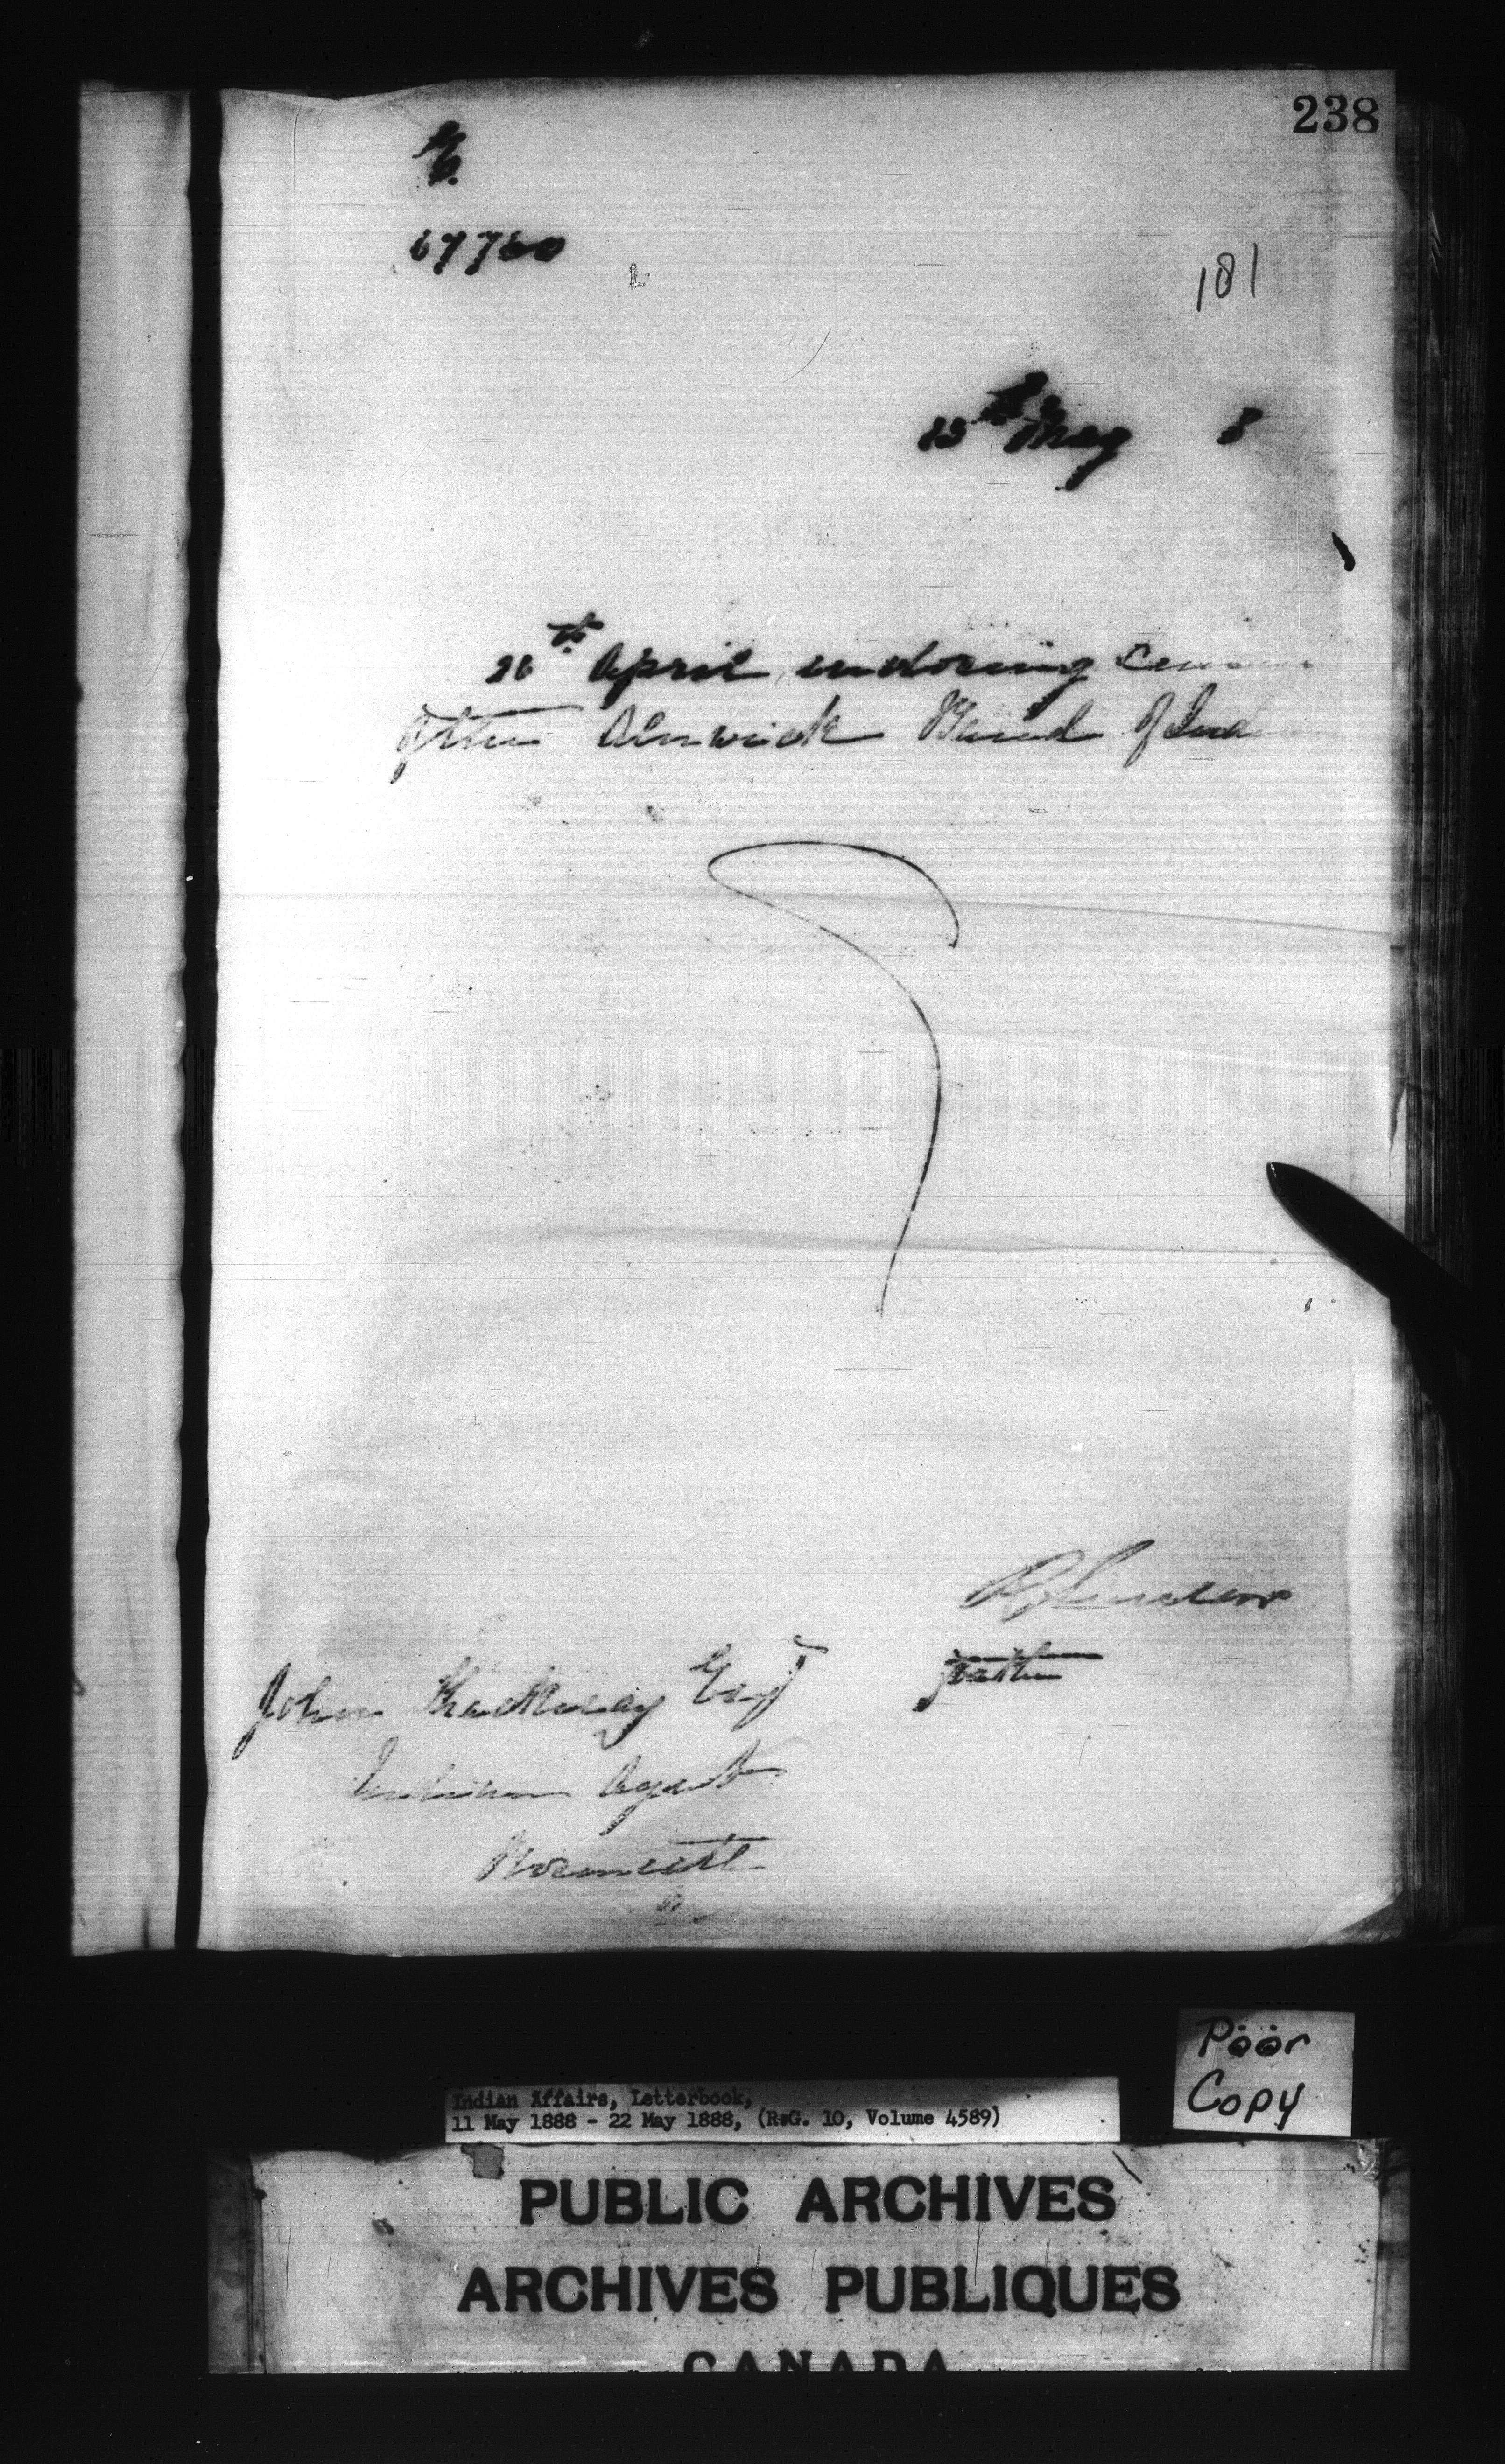 238
67760
181
15th May 8
26th April, enclosing Census
of the Alnwick Band of Ind
R Sinclair
for the
John Thackeray Esq
Indian Agent
Roseneath
Poor
Copy
Indian Affairs, Letterbook,
11 May 1888 - 22 May 1888, (R.G. 10, Volume 4589)
PUBLIC ARCHIVES
ARCHIVES PUBLIQUES
CANADA